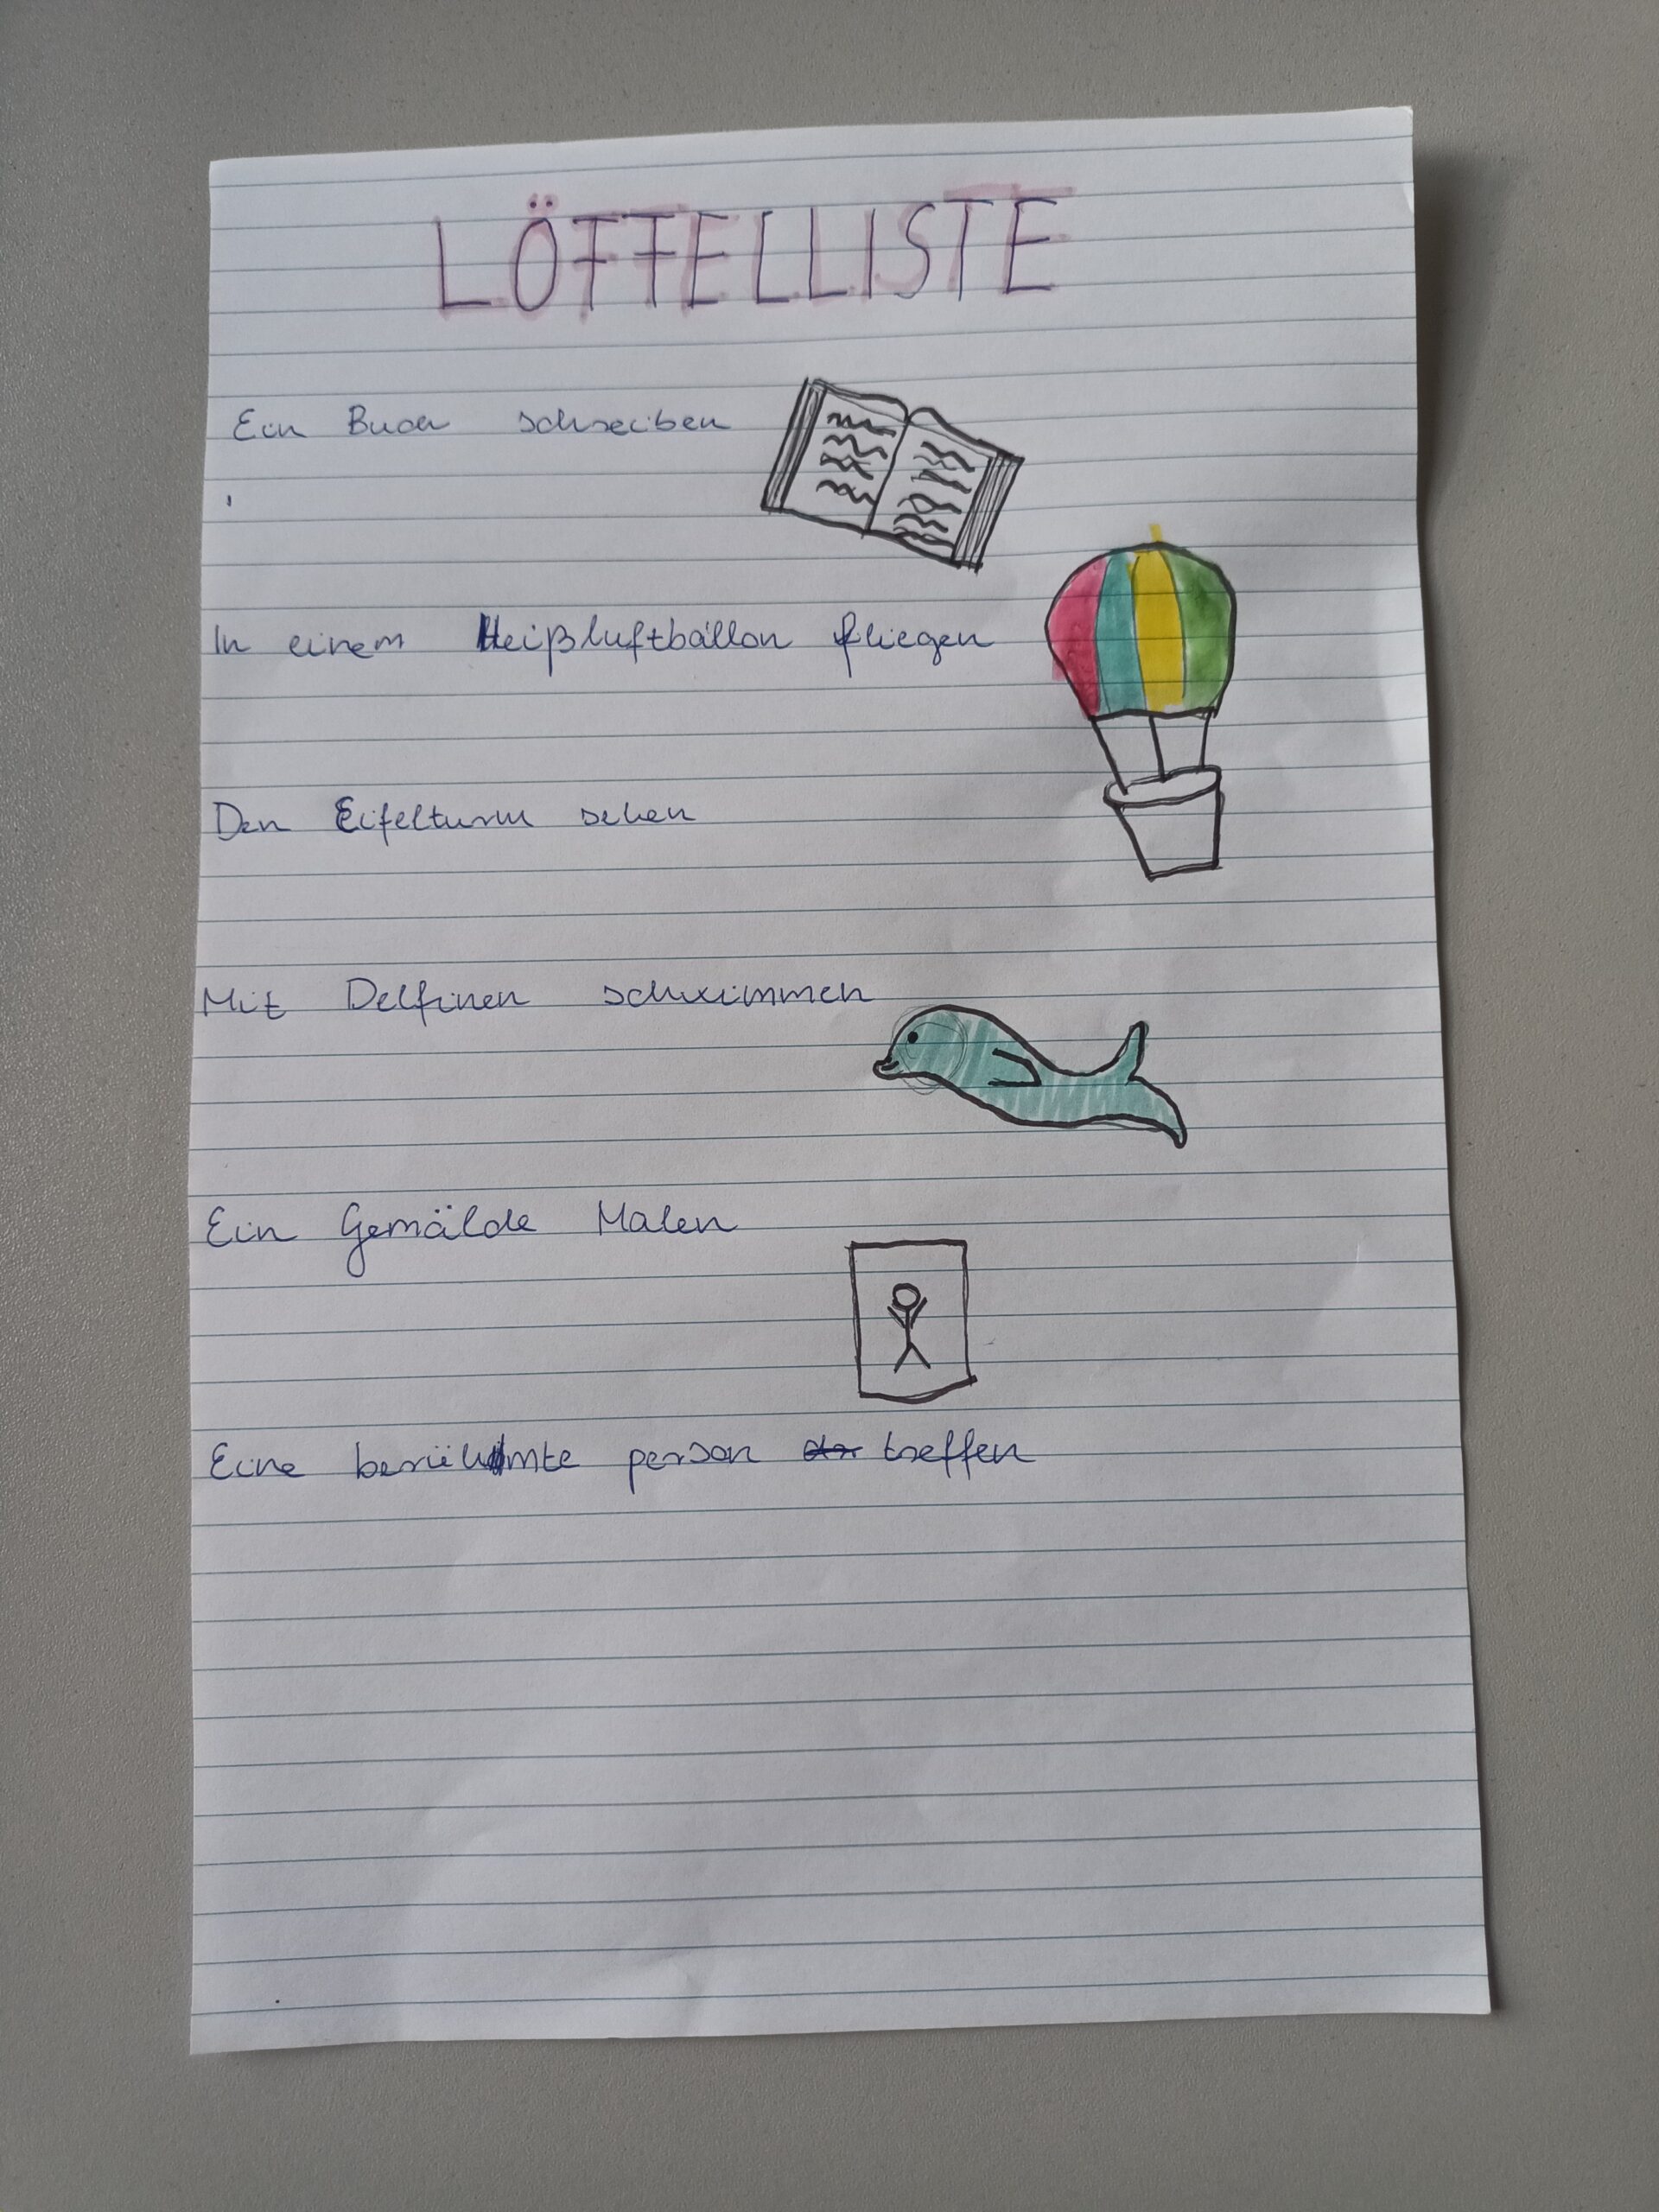 LÖFFELLISTE
Ein Buch schreiben
In einem Heißluftballon fliegen
Den Eifelturm sehen
Mit Delfinen schwimmen
Ein Gemälde Malen
Eine berühmte person treffen